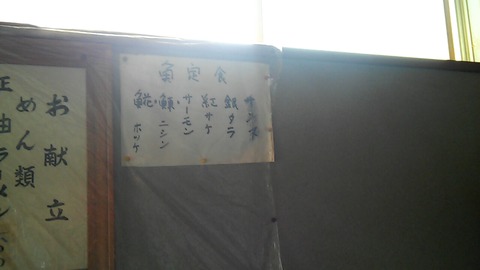 魚定食
サンマ
銀タラ
紅サケ
サーモン
鰊・ニシン
𩸽・ホッケ
お献立
めん類
正油ラーメン